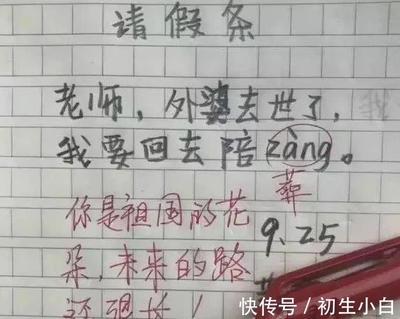 请假条
老师，外婆去世了，
我要回去陪zàng。
葬
你是祖国的花
朵，未来的路
还很长！
9.25
快传号 / 初生小白